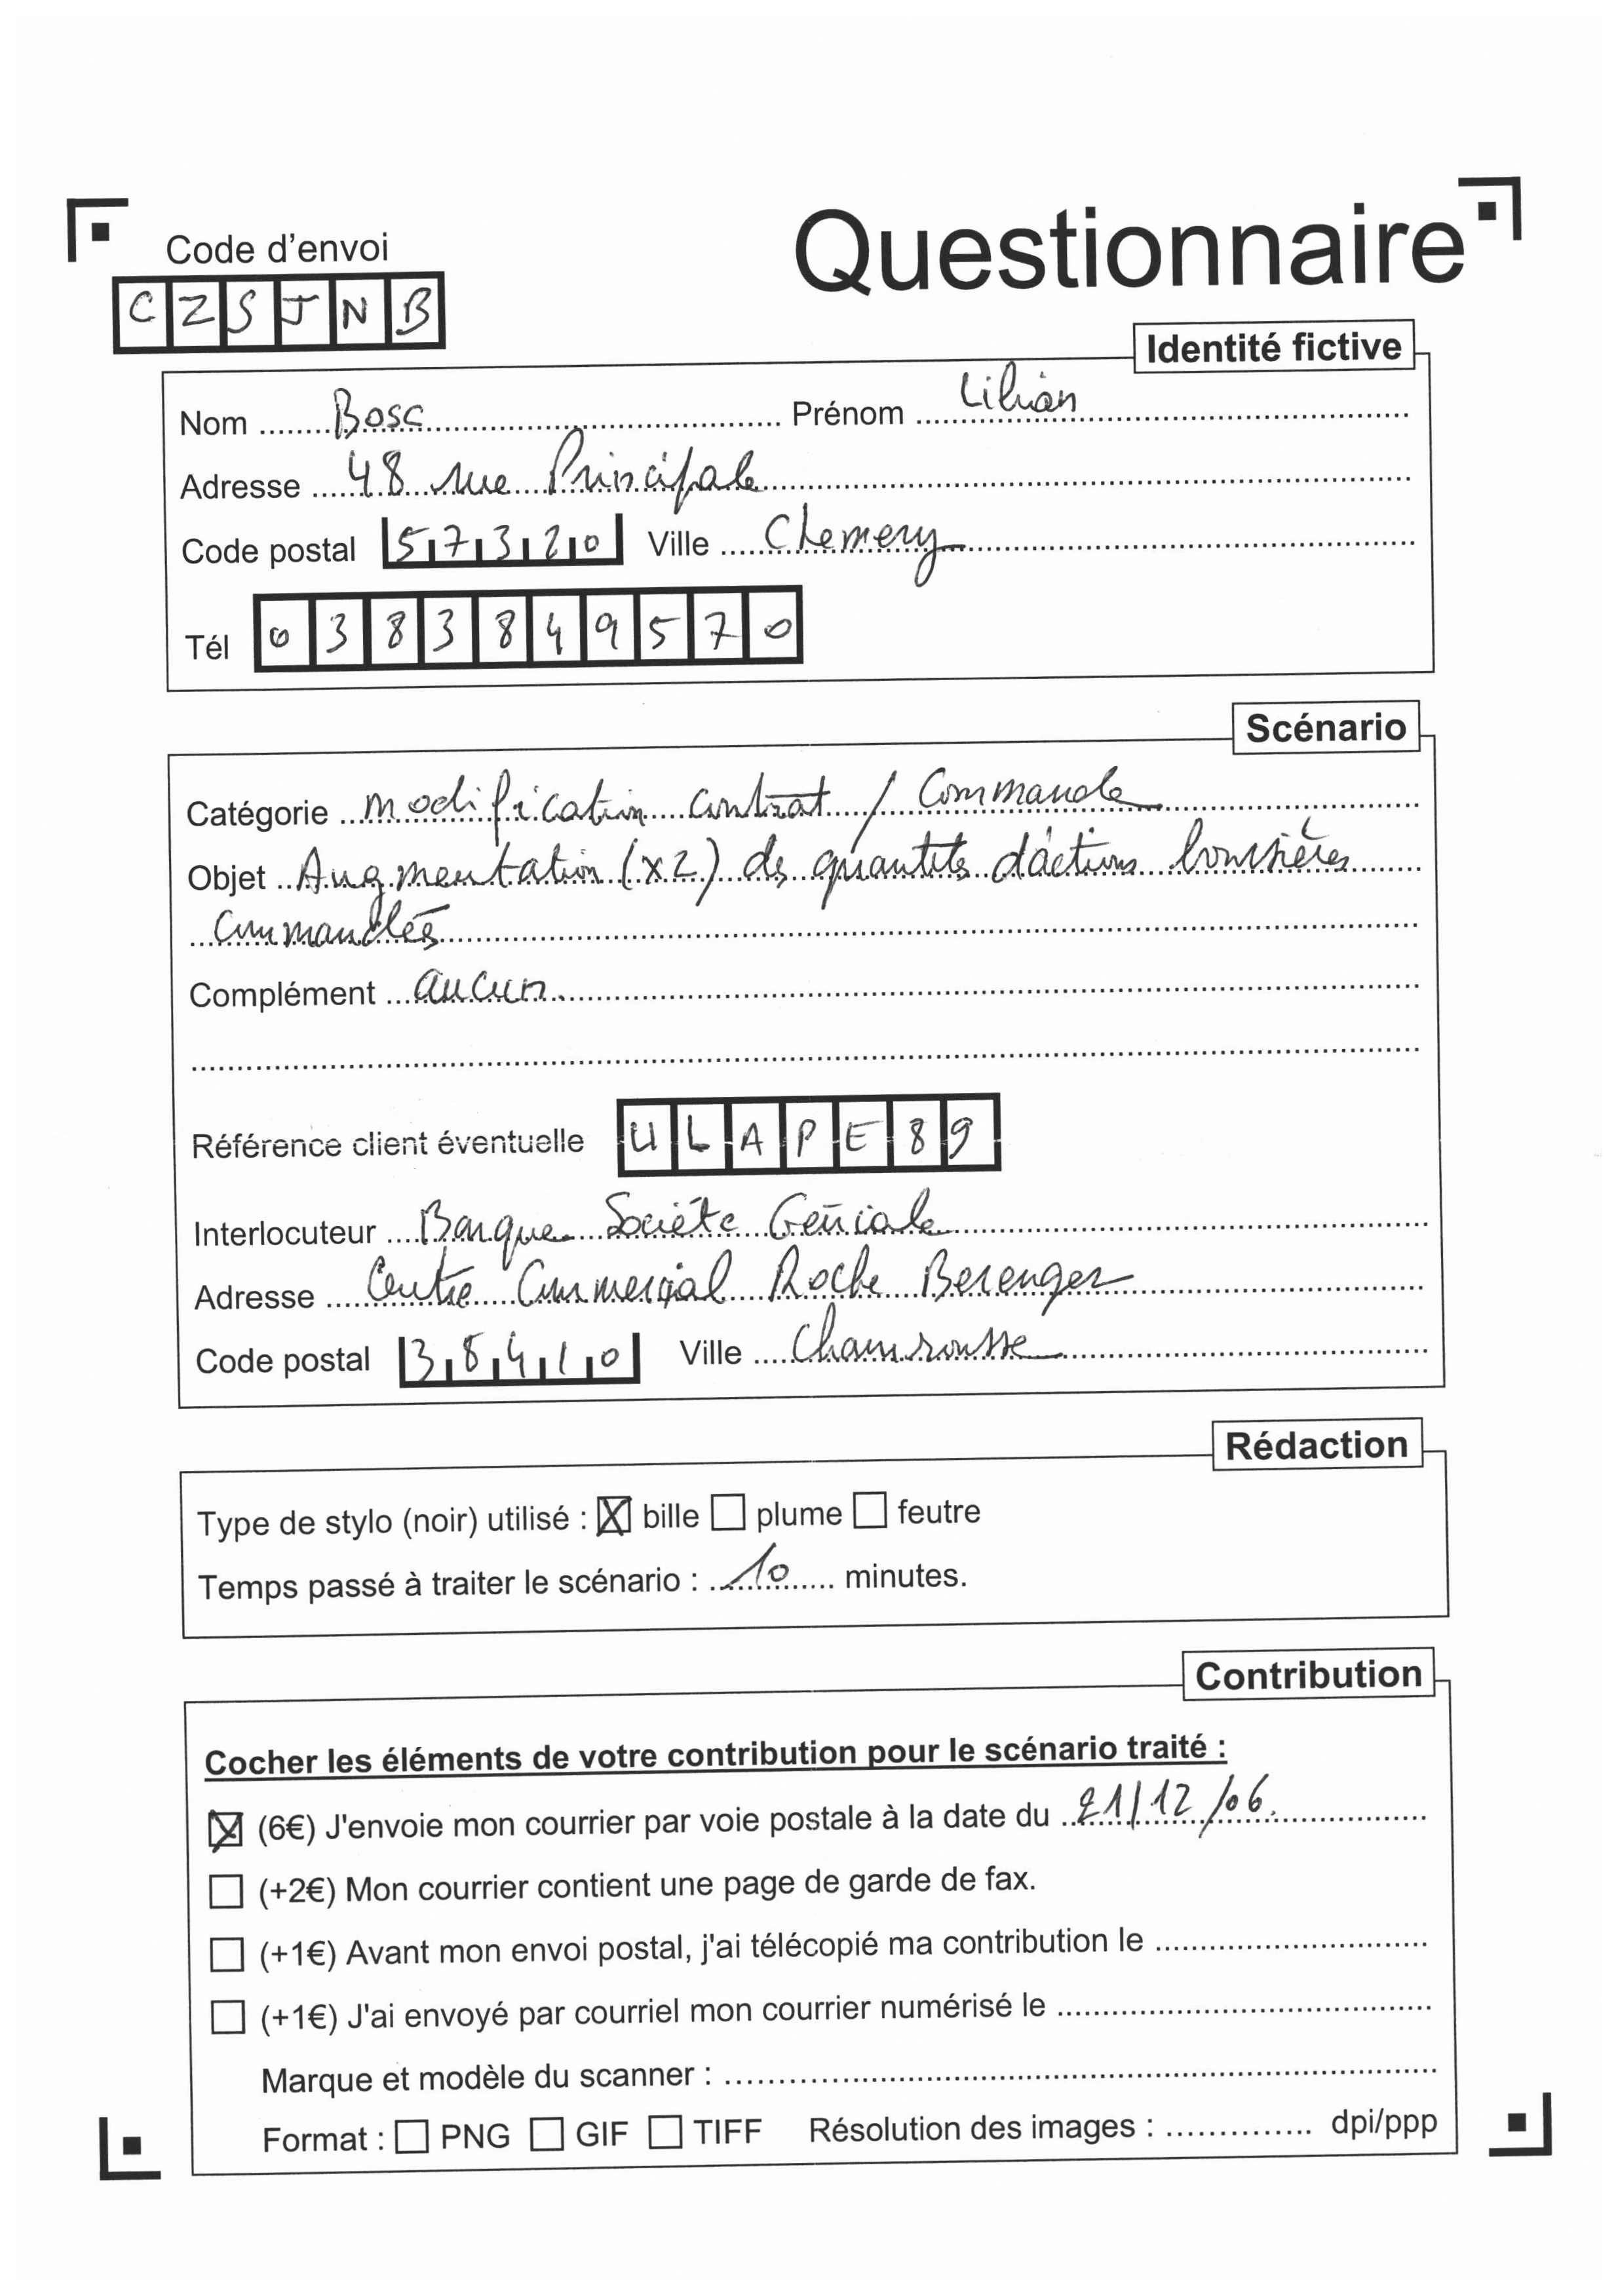 Code d'envoi
Questionnaire
C Z S J N B
Identité fictive
Nom Bosc Prénom Lilian
Adresse 48 rue Principale
Code postal 57320 Ville Chemery
Tél 0383849570
Scénario
Catégorie modification contrat / Commande
Objet Augmentation (x2) des quantités d'actions boursières
commandées
Complément aucun.
Référence client éventuelle ULAPE89
Interlocuteur Banque Société Générale
Adresse Centre Commercial Roche Berenger
Code postal 38410 Ville Chamrousse
Rédaction
Type de stylo (noir) utilisé : ☒ bille ☐ plume ☐ feutre
Temps passé à traiter le scénario : 10 minutes.
Contribution
Cocher les éléments de votre contribution pour le scénario traité :
☒ (6€) J'envoie mon courrier par voie postale à la date du 21/12/06.
☐ (+2€) Mon courrier contient une page de garde de fax.
☐ (+1€) Avant mon envoi postal, j'ai télécopié ma contribution le
☐ (+1€) J'ai envoyé par courriel mon courrier numérisé le
Marque et modèle du scanner :
Format : ☐ PNG ☐ GIF ☐ TIFF Résolution des images : dpi/ppp